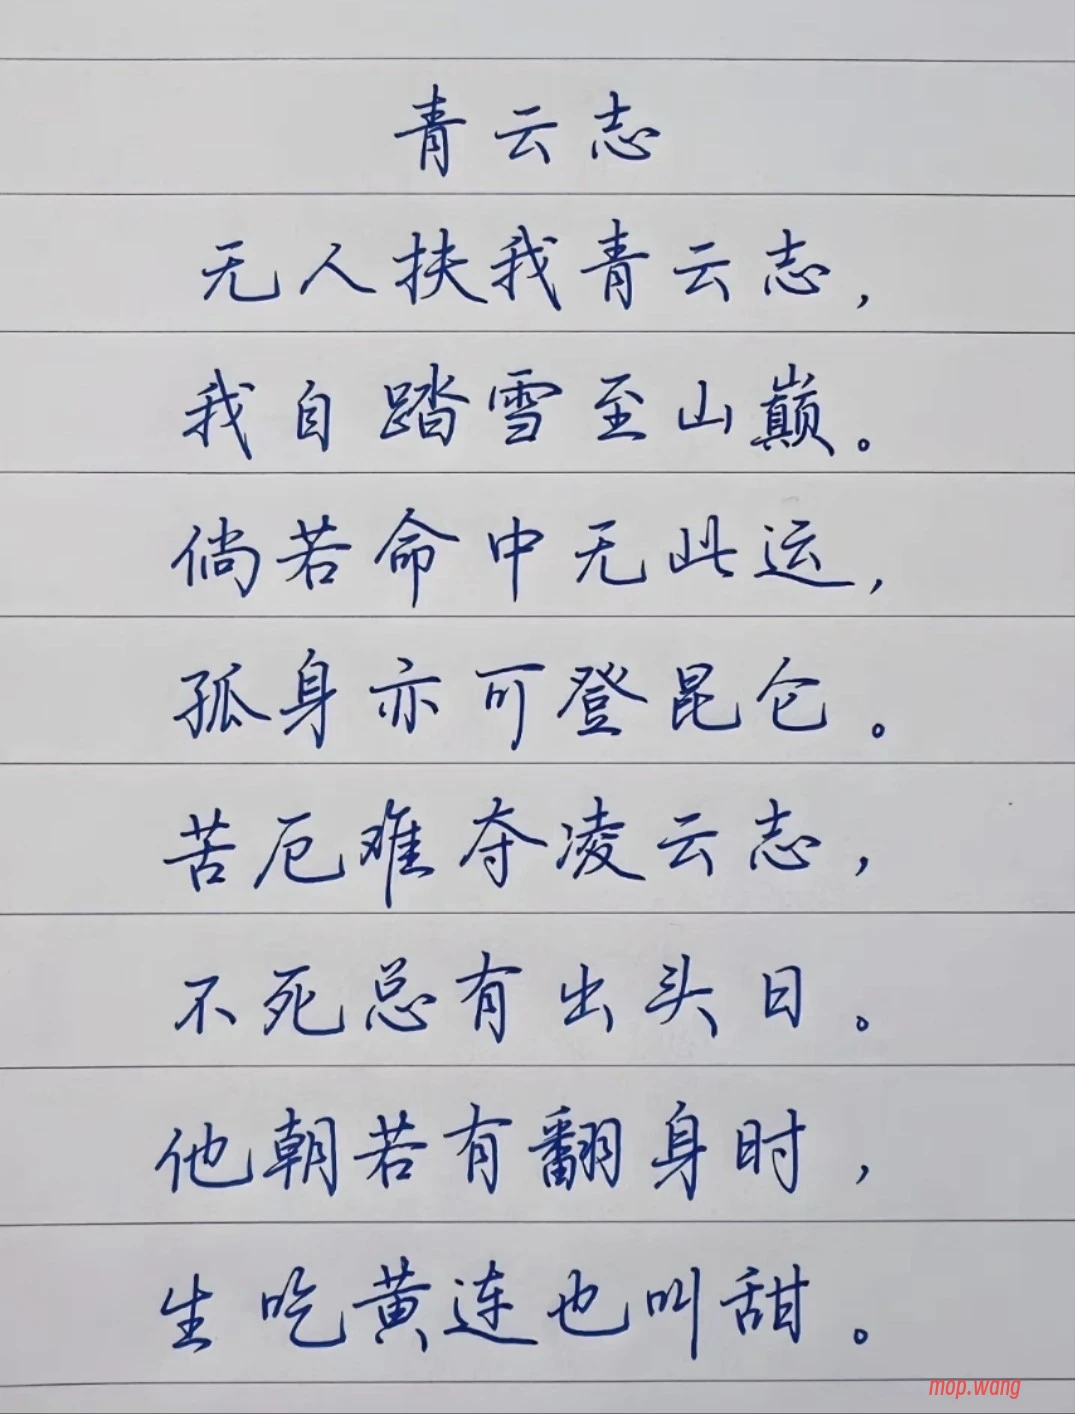 青云志
无人扶我青云志，
我自踏雪至山巅。
倘若命中无此运，
孤身亦可登昆仑。
苦厄难夺凌云志，
不死总有出头日。
他朝若有翻身时，
生吃黄连也叫甜。
mop.wang